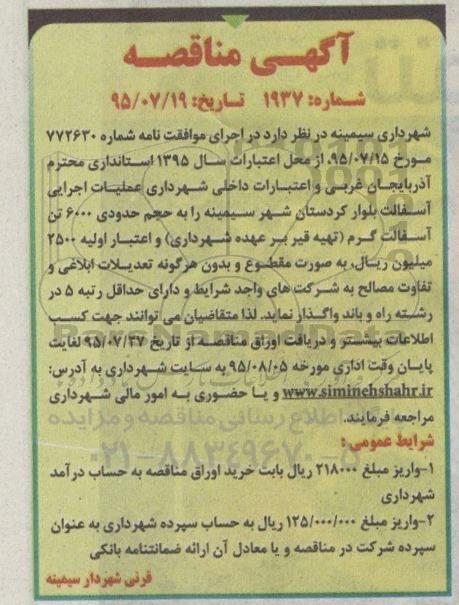 آگهـی مناقصـه
شماره: ۱۹۳۷ تاریخ: ۹۵/۰۷/۱۹
شهرداری سیمینه در نظر دارد در اجرای موافقت نامه شماره ۷۷۲۶۳۰
مورخ ۹۵/۰۷/۱۵، از محل اعتبارات سال ۱۳۹۵ استانداری محترم
آذربایجان غربی و اعتبارات داخلی شهرداری عملیات اجرایی
آسفالت بلوار کردستان شهر سیمینه را به حجم حدودی ۶۰۰۰ تن
آسفالت گرم (تهیه قیر بر عهده شهرداری) و اعتبار اولیه ۲۵۰۰
میلیون ریال، به صورت مقطوع و بدون هرگونه تعدیلات ابلاغی و
تفاوت مصالح به شرکت های واجد شرایط و دارای حداقل رتبه ۵ در
رشته راه و باند واگذار نماید. لذا متقاضیان می توانند جهت کسب
اطلاعات بیشتر و دریافت اوراق مناقصه از تاریخ ۹۵/۰۷/۲۷ لغایت
پایان وقت اداری مورخه ۹۵/۰۸/۰۵ به سایت شهرداری به آدرس:
www.siminehshahr.ir و یا حضوری به امور مالی شهرداری
مراجعه فرمایند.
شرایط عمومی :
۱-واریز مبلغ ۲۱۸۰۰۰ ریال بابت خرید اوراق مناقصه به حساب درآمد
شهرداری
۲-واریز مبلغ ۱۲۵/۰۰۰/۰۰۰ ریال به حساب سپرده شهرداری به عنوان
سپرده شرکت در مناقصه و یا معادل آن ارائه ضمانتنامه بانکی
قرنی شهردار سیمینه
ParsNamadData
۰۲۱-۸۸۳۴۹۶۷۰-۵